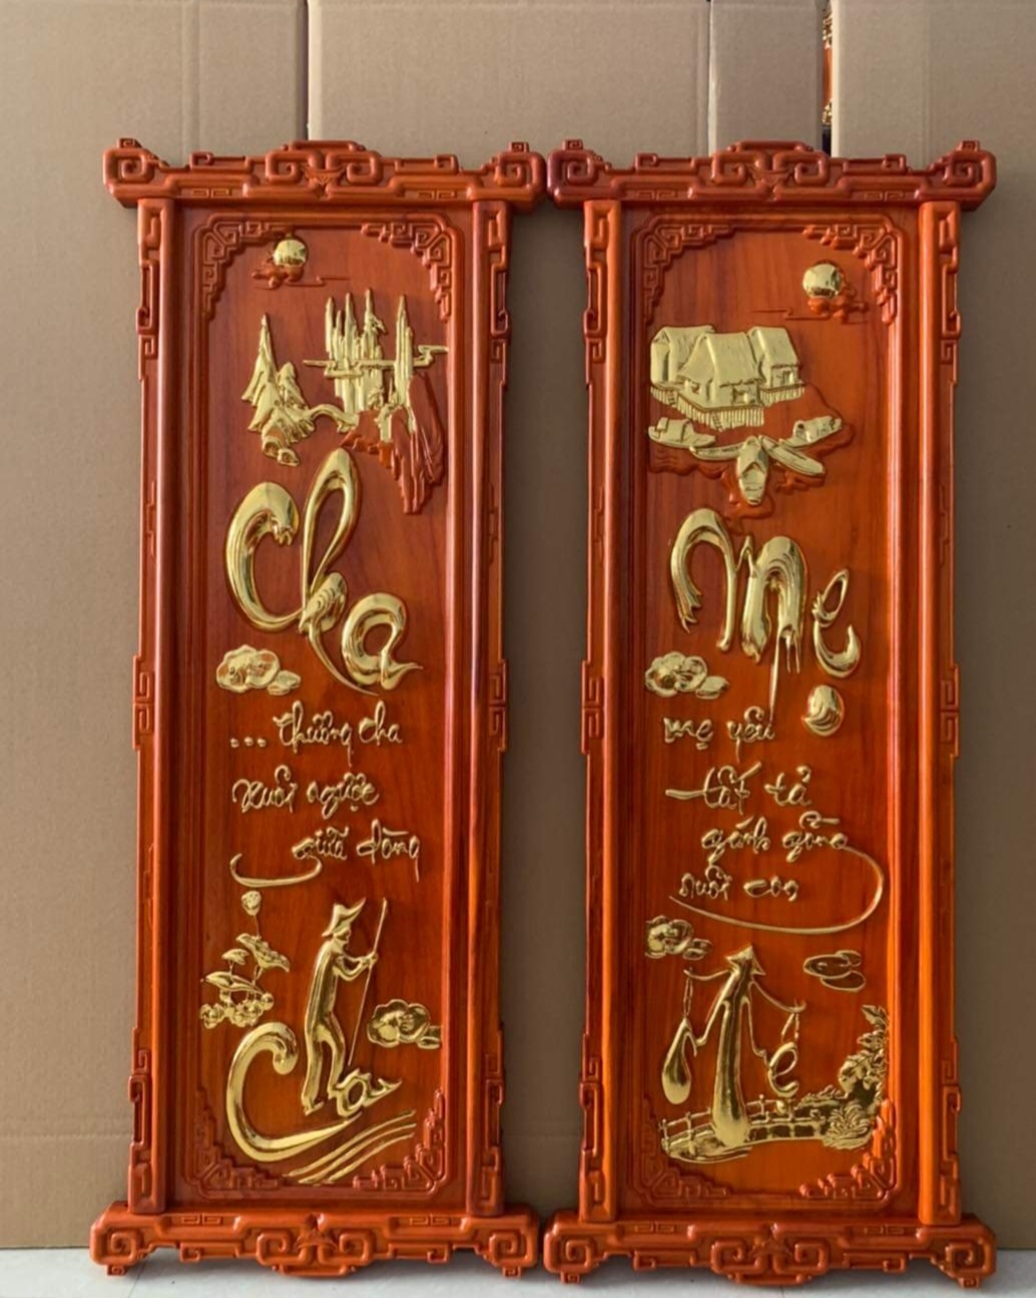 Cha
... thương cha
xuôi ngược
giữa dòng
Cha
Mẹ
mẹ yêu
tất tả
gánh gồng
nuôi con
Mẹ